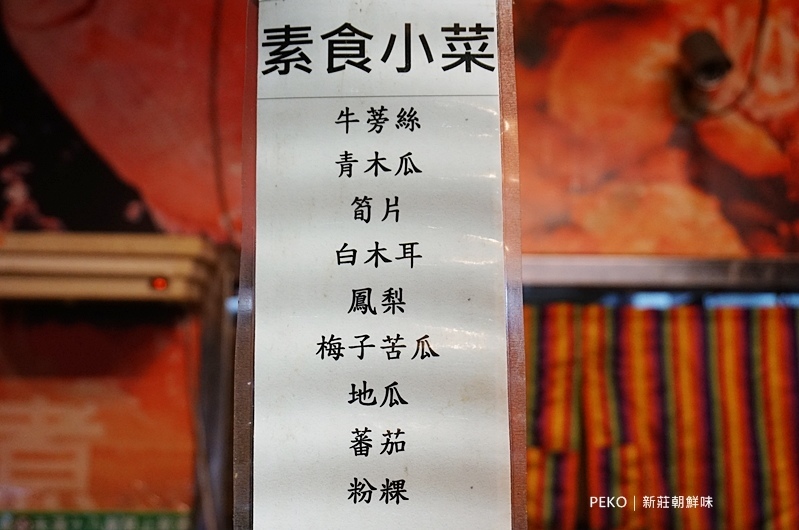 素食小菜
牛蒡絲
青木瓜
筍片
白木耳
鳳梨
梅子苦瓜
地瓜
蕃茄
粉粿
煮
PEKO｜新莊朝鮮味